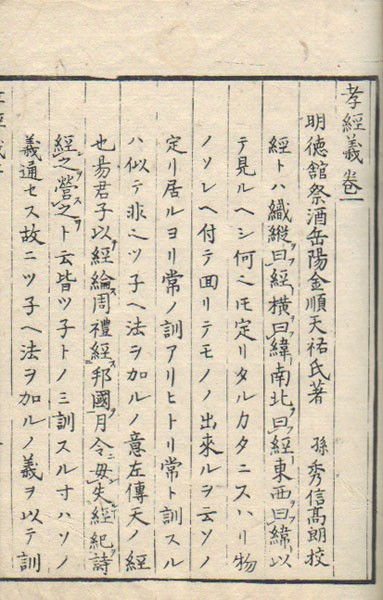 孝經義卷一
明德館祭酒岳陽金順天祐氏著 孫秀信高朗校
經トハ織縱曰經橫曰緯南北曰經東西曰緯以
テ見ルヘシ何ニモ定リタルカタニスハリ物
ノソレヘ付テ回リテモノノ出來ルヲ云ソノ
定リ居ルヨリ常ノ訓アリヒトリ常ト訓スル
ハ似テ非也ツ子ヘ法ヲ加ルノ意左傳天ノ經
也易君子以經綸周禮經邦國月令毋失經紀詩
經之營之ト云皆ツ子トノミ訓スル寸ハソノ
義通セス故ニツ子ヘ法ヲ加ルノ義ヲ以テ訓